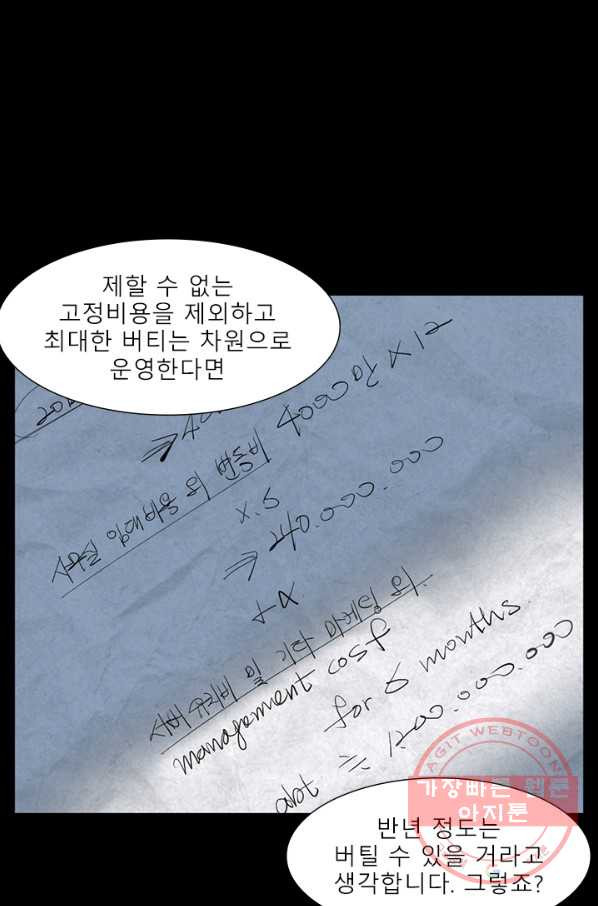 제할 수 없는
고정비용을 제외하고
최대한 버티는 차원으로
운영한다면
400만 X 12
사무실 임대비용 및 변동비
X.5
≤ 240.000.000
+α
서버 유지비 및 기타 마케팅 비
management cost
for 6 months
apt = 12
AGIT WEBTOON
가장빠른 웹툰
아지툰
반년 정도는
버틸 수 있을 거라고
생각합니다. 그렇죠?